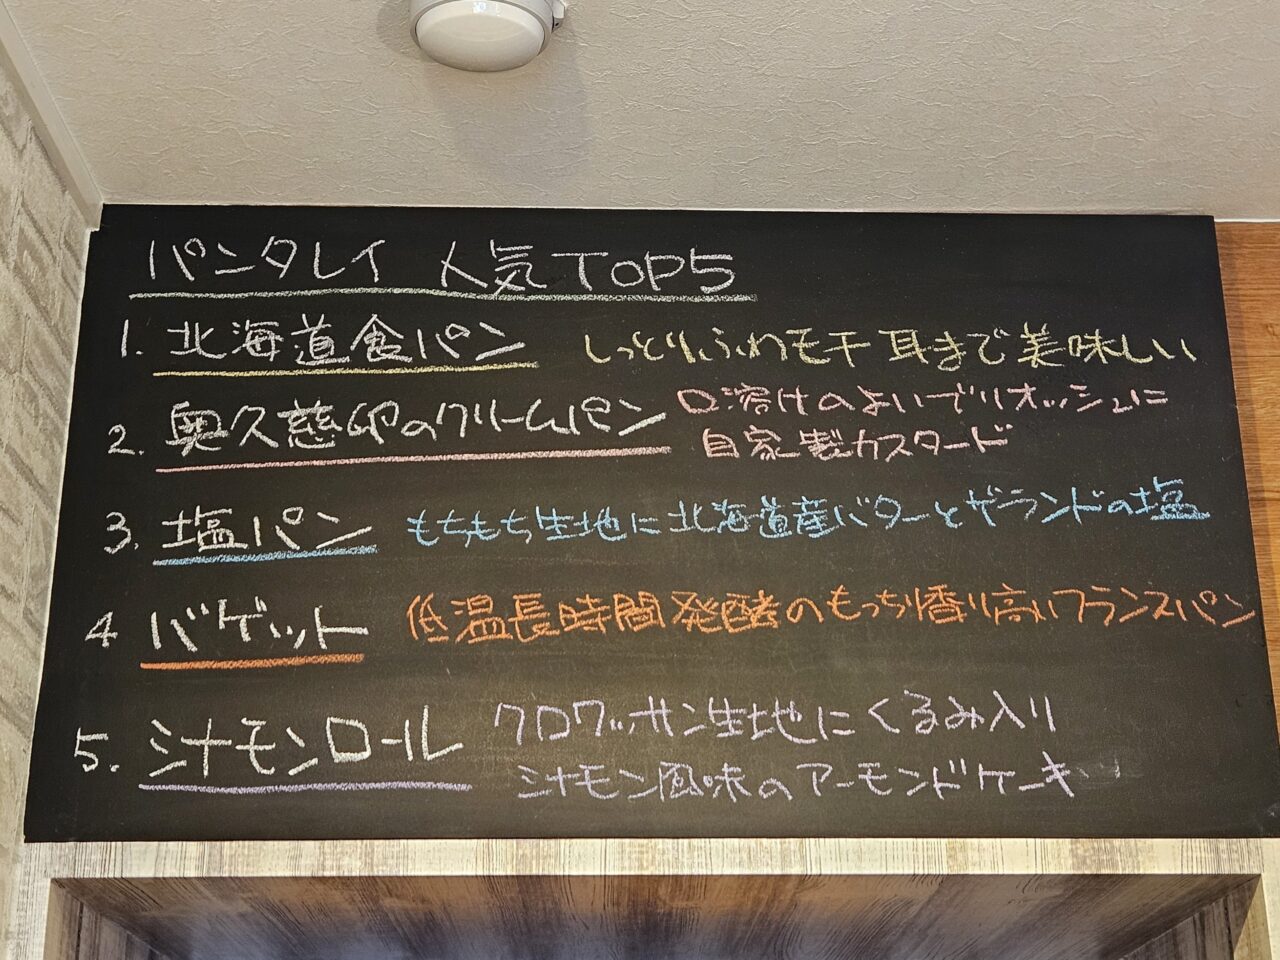 パンタレイ 人気TOP5
1. 北海道食パン しっとりふわモチ 耳まで美味しい
2. 奥久慈卵のクリームパン 口溶けのよいブリオッシュに
自家製カスタード
3. 塩パン もちもち生地に北海道産バターとゲランドの塩
4 バゲット 低温長時間発酵のもっちり香り高いフランスパン
5. シナモンロール クロワッサン生地にくるみ入り
シナモン風味のアーモンドケーキ